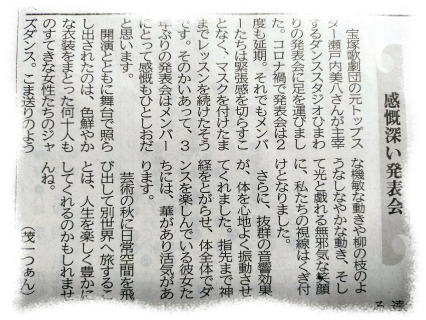 感慨深い発表会
宝塚歌劇団の元トップス
ター瀬戸内美八さんが主宰
するダンススタジオひまわ
りの発表会に足を運びまし
た。コロナ禍で発表会は2
度も延期。それでもメンバ
ーたちは緊張感を切らすこ
となく、マスクを付けたま
までレッスンを続けたそう
です。そのかいあって、3
年ぶりの発表会はメンバー
にとって感慨もひとしおだ
と思います。
開演とともに舞台で照ら
し出されたのは、色鮮やか
な衣装をまとった何十人も
のすてきな女性たちのジャ
ズダンス。こま送りのよう
な機敏な動きや柳の枝のよ
うなしなやかな動き、そし
て光と戯れる無邪気な笑顔
に、私たちの視線はくぎ付
けとなりました。
さらに、抜群の音響効果
が、体を心地よく振動させ
てくれました。指先まで神
経をとがらせ、体全体でダ
ンスを楽しんでいる彼女た
ちには、華があり活気があ
ります。
芸術の秋に日常空間を飛
び出して別世界へ旅するこ
とは、人生を楽しく豊かに
してくれるのかもしれませ
んね。
(茂一つぁん)